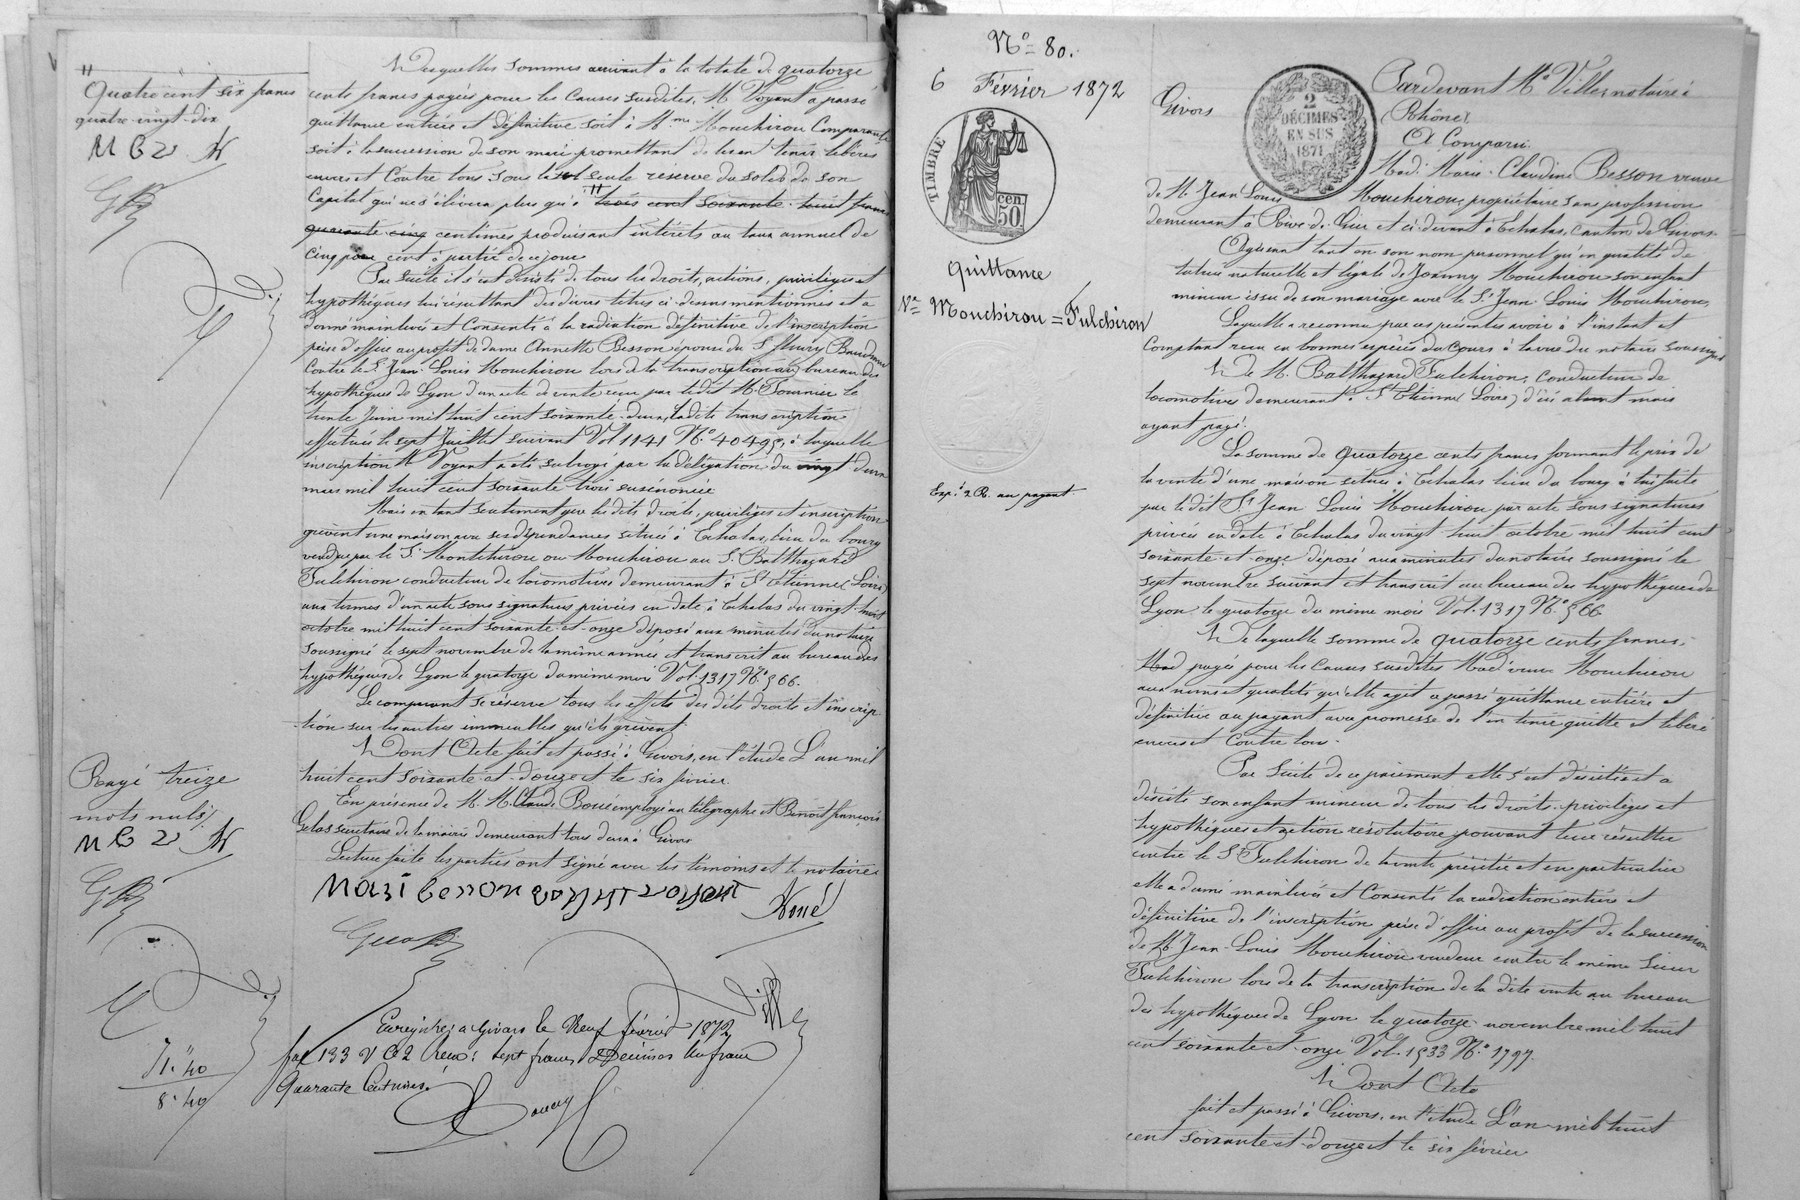 "
Quatre cent six francs
quatre-vingt-dix
MB V
Desquelles sommes arrivant à la totale de quatorze
cents francs payée pour les Causes susdites, M. Voyant a passé
quittance entière et définitive soit à Mme Mouchirou Comparante
soit à la succession de son mari promettant de les en tenir libérés
envers et Contre tous sous la seule réserve du solde de son
Capital qui ne s'élèvera plus qu'à " trois cent soixante-huit francs
quarante cinq centimes produisant intérêts au taux annuel de
cinq pour cent à partir de ce jour
Par suite il s'est désisté de tous les droits, actions, privilèges et
hypothèques lui résultant des divers titres ci-dessus mentionnés et a
donné mainlevée et Consenti à la radiation définitive de l'inscription
prise d'office au profit de dame Annette Besson épouse du Sr fleury
Contre le Sr Jean-Louis Mouchirou lors de la transcription au bureau des
hypothèques de Lyon d'un acte de vente reçu par ledit Me Fournier le
trente Juin mil huit cent soixante-deux, ladite transcription
effectuée le sept Juillet suivant Vol 1141 No 40495, à laquelle
inscription M. Voyant a été subrogé par la délégation du vingt-deux
mars mil huit cent soixante-trois susénoncée
Mais en tant seulement que les dits droits, privilèges et inscription
grèvent une maison avec ses dépendances située à Echalas, lieu du bourg
vendue par le Sr Montchirou ou Mouchirou au Sr Balthazard
Fulchiron conducteur de locomotives demeurant à St Etienne (Loire)
aux termes d'un acte sous signatures privées en date à Echalas du vingt-huit
octobre mil huit cent soixante-et-onze déposé aux minutes du notaire
soussigné le sept novembre de la même année et transcrit au bureau des
hypothèques de Lyon le quatorze du même mois Vol. 1317 No 566.
Le comparant se réserve tous les effets des dits droits et inscrip
-tion sur les autres immeubles qu'ils grèvent
Dont Acte fait et passé à Givors, en l'étude L'an mil
huit cent soixante-et-douze et le six février
En présence de M. M. Claude Boué employé au télégraphe et Benoît françois
Gelas secrétaire de la mairie demeurant tous deux à Givors
Lecture faite les parties ont signé avec les témoins et le notaire
Rayé treize
mots nuls
MB V
Enregistré à Givors le Neuf février 1872
fol 133 V C 2 Reçu: sept francs 2 Décimes Un franc
Quarante Centimes.
7. "
1. 40
8. 40
No 80.
6 Février 1872
TIMBRE
50 cen.
Quittance
Ve Mouchirou = Fulchiron
Exp. 2 R. au payant
2
DÉCIMES
EN SUS
1871
Pardevant Me Villes notaire à
Givors (Rhône)
A Comparu:
Mad. Marie-Claudine Besson veuve
de M. Jean Louis Mouchirou, propriétaire sans profession
demeurant à Rive-de-Gier et ci-devant à Echalas, canton de Givors
Agissant tant en son nom personnel qu'en qualité de
tutrice naturelle et légale de Jeanny Mouchirou son enfant
mineur issu de son mariage avec le Sr Jean-Louis Mouchirou,
Laquelle a reconnu par ces présentes avoir à l'instant et
Comptant reçu en bonnes espèces du Cours à la vue du notaire soussigné
De M. Balthazard Fulchiron, conducteur de
locomotives demeurant à St Etienne (Loire) d'ici absent mais
ayant payé.
La somme de quatorze cents francs formant le prix de
la vente d'une maison située à Echalas lieu du bourg à lui faite
par le dit Sr Jean Louis Mouchirou par acte sous signatures
privées en date à Echalas du vingt huit octobre mil huit cent
soixante-et-onze déposé aux minutes du notaire soussigné le
sept novembre suivant et transcrit au bureau des hypothèques de
Lyon le quatorze du même mois Vol. 1317 No 566
De laquelle somme de quatorze cents francs,
payée pour les Causes susdites Mad. veuve Mouchirou
aux noms et qualités qu'elle agit a passé quittance entière et
définitive au payant avec promesse de l'en tenir quitte et libéré
envers et Contre tous.
Par Suite de ce paiement elle s'est désistée et a
désisté son enfant mineur de tous les droits, privilèges et
hypothèques et action résolutoire pouvant leur résulter
contre le Sr Fulchiron de la vente précitée et en particulier
elle a donné mainlevée et Consenti la radiation entière et
définitive de l'inscription prise d'office au profit de la succession
de M. Jean-Louis Mouchirou vendeur contre le même Sieur
Fulchiron lors de la transcription de la dite vente au bureau
des hypothèques de Lyon le quatorze novembre mil huit
cent soixante et-onze Vol. 1533 No 1797.
Dont Acte
fait et passé à Givors, en l'étude L'an mil huit
cent soixante-et-douze et le six février